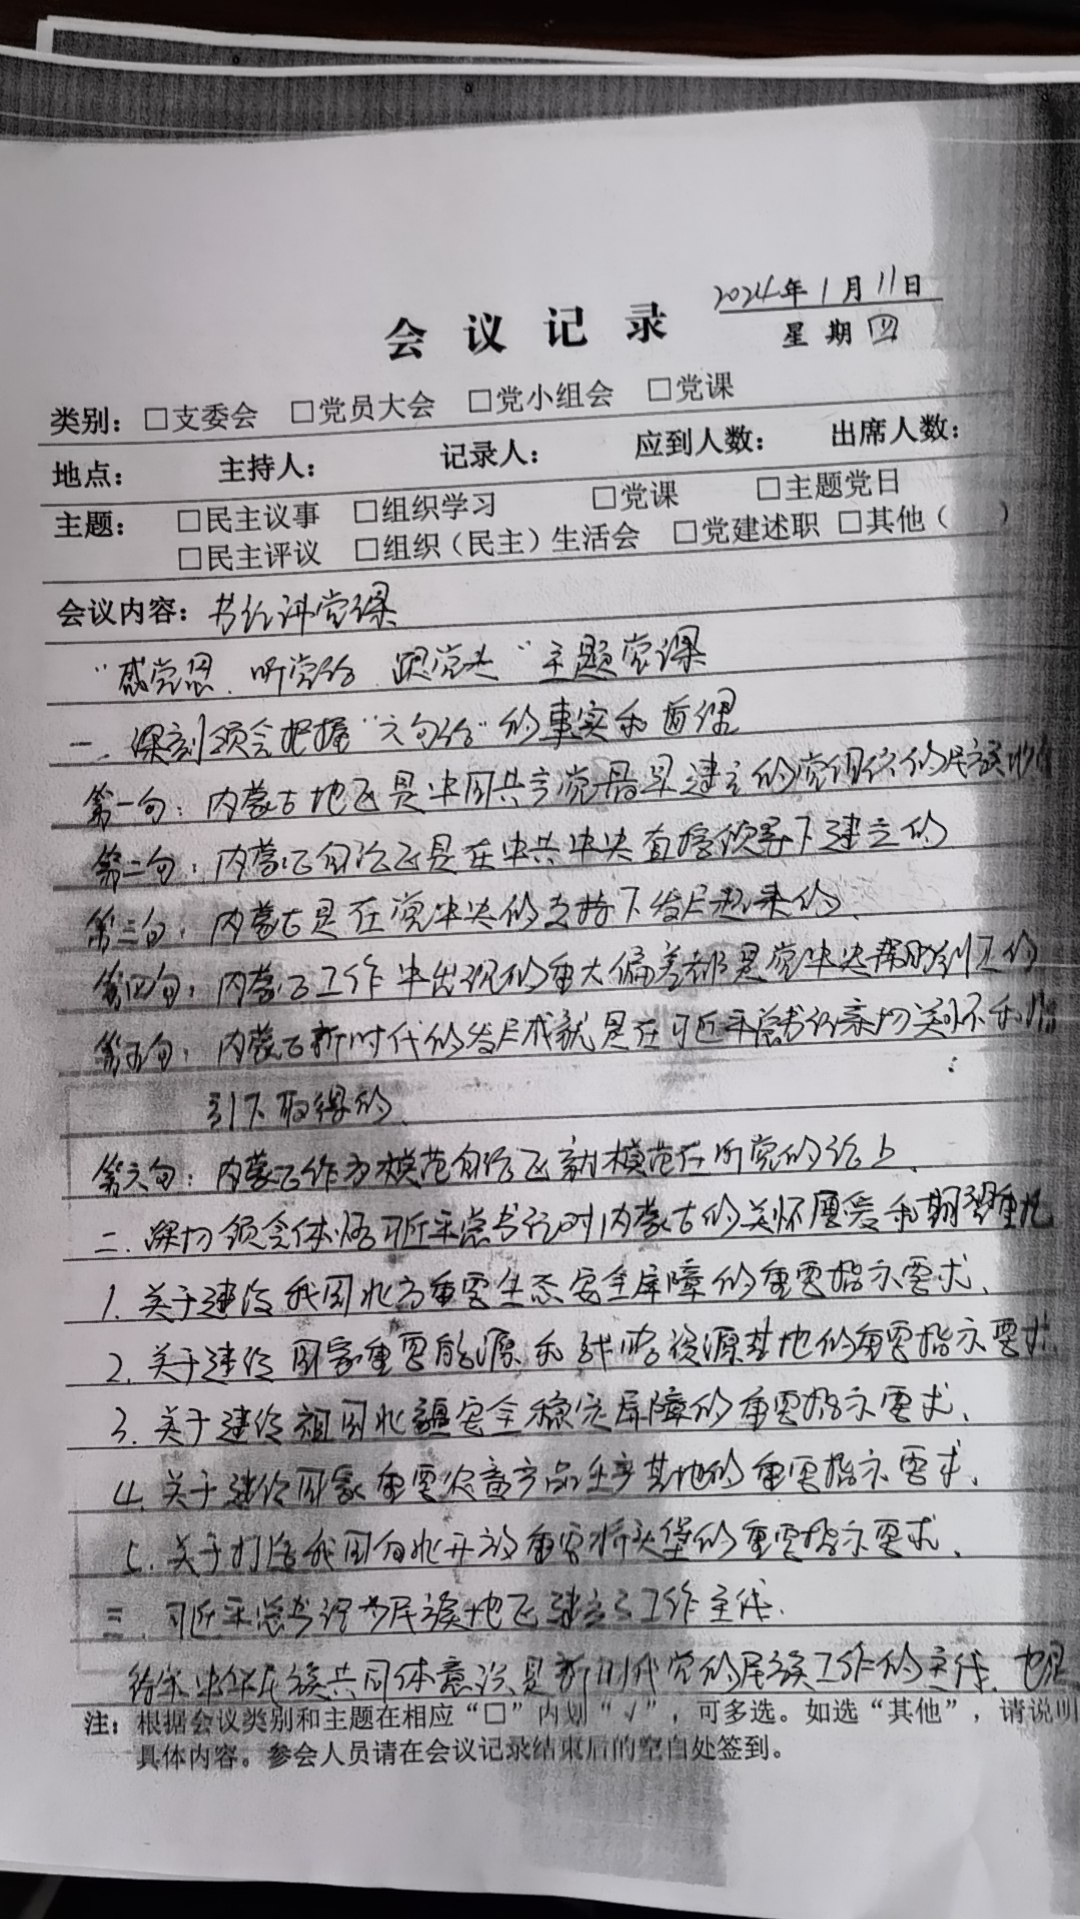 2024年1月11日
会议记录
星期四
类别：□支委会 □党员大会 □党小组会 □党课
地点： 主持人： 记录人： 应到人数： 出席人数：
主题： □民主议事 □组织学习 □党课 □主题党日
□民主评议 □组织（民主）生活会 □党建述职 □其他（ ）
会议内容：书记讲党课
“感党恩、听党话、跟党走”主题党课
一、深刻领会把握“六句话”的事实和道理
第一句：内蒙古地区是中国共产党最早建立党组织的民族地
第二句：内蒙古自治区是在中共中央直接领导下建立的
第三句：内蒙古是在党中央的支持下发展起来的、
第四句：内蒙古工作中出现的重大偏差都是党中央帮助纠正的
第五句：内蒙古新时代的发展成就是在习近平总书记亲切关怀和
引下取得的、
第六句：内蒙古作为模范自治区就模范在听党的话上、
二、深切领会体悟习近平总书记对内蒙古的关怀厚爱和期望重托
1、关于建设我国北方重要生态安全屏障的重要指示要求、
2、关于建设国家重要能源和战略资源基地的重要指示要求
3、关于建设祖国北疆安全稳定屏障的重要指示要求、
4、关于建设国家重要农畜产品生产基地的重要指示要求、
5、关于打造我国向北开放重要桥头堡的重要指示要求、
三、习近平总书记为民族地区建立了工作主线、
铸牢中华民族共同体意识是新时代党的民族工作的主线、也是
注：根据会议类别和主题在相应“□”内划“√”，可多选。如选“其他”，请说明
具体内容。参会人员请在会议记录结束后的空白处签到。